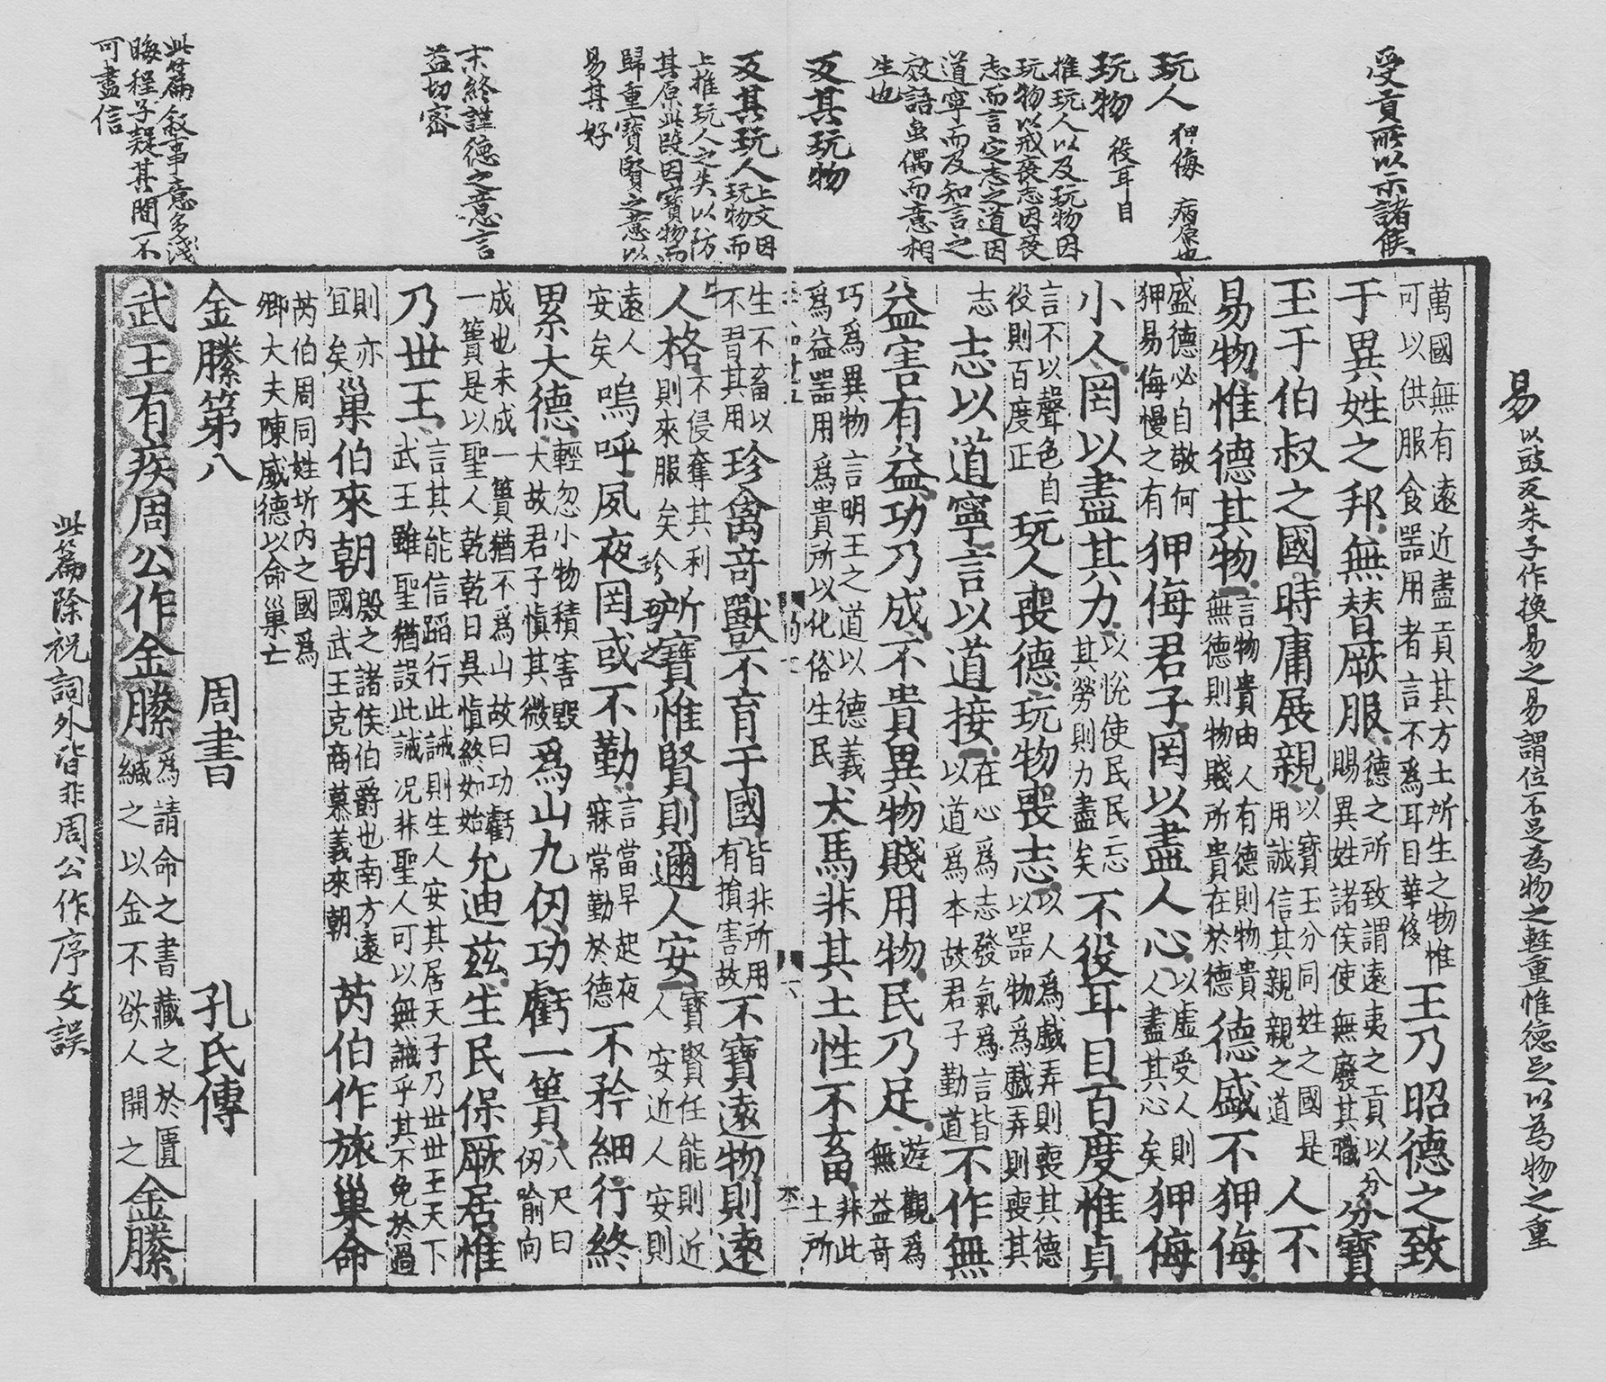 受貢所以示諸侯
玩人 狎侮 病原也
玩物 役耳目
推玩人以及玩物因
玩物以戒喪志因喪
志而言定志之道因
道寧而及知言之
效語虽偶而意相
生也
反其玩物
反其玩人 上文因
玩物而
上推玩人之失以防
其原此段因寶物而
歸重寶賢之意以
易其好
末終謹德之意言
益切密
此篇敘事意多淺
晦程子疑其間不
可盡信
易 以豉反朱子作換易之易謂位不足為物之輕重惟德足以為物之重
萬國無有遠近盡貢其方土所生之物惟
可以供服食器用者言不為耳目華侈 王乃昭德之致
于異姓之邦無替厥服 德之所致謂遠夷之貢以分
賜異姓諸侯使無廢其職 分寶
玉于伯叔之國時庸展親 以寶玉分同姓之國是
用誠信其親親之道 人不
易物惟德其物 言物貴由人有德則物貴
無德則物賤所貴在於德 德盛不狎侮
盛德必自敬何
狎易侮慢之有 狎侮君子罔以盡人心 以虛受人則
人盡其心矣 狎侮
小人罔以盡其力 以悅使民民忘
其勞則力盡矣 不役耳目百度惟貞
言不以聲色自
役則百度正 玩人喪德玩物喪志 以人為戲弄則喪其德
以器物為戲弄則喪其
志 志以道寧言以道接 在心為志發氣為言皆
以道為本故君子勤道 不作無
益害有益功乃成不貴異物賤用物民乃足 遊觀為
無益奇
巧為異物言明王之道以德義
為益器用為貴所以化俗生民 犬馬非其土性不畜 非此
土所
生不畜以
不習其用 珍禽奇獸不育于國 皆非所用
有損害故 不寶遠物則遠
人格 不侵奪其利
則來服矣 所寶惟賢則邇人安 寶賢任能則近
人安近人安則
遠人
安矣 嗚呼夙夜罔或不勤 言當早起夜
寐常勤於德 不矜細行終
累大德 輕忽小物積害毀
大故君子慎其微 為山九仞功虧一簣 八尺曰
仞喻向
成也未成一簣猶不為山故曰功虧
一簣是以聖人乾乾日昃慎終如始 允迪茲生民保厥居惟
乃世王 言其能信蹈行此誡則生人安其居天子乃世世王天下
武王雖聖猶設此誡況非聖人可以無誡乎其不免於過
則亦
宜矣 巢伯來朝 殷之諸侯伯爵也南方遠
國武王克商慕義來朝 芮伯作旅巢命
芮伯周同姓圻內之國為
卿大夫陳威德以命巢亡
金縢第八 周書 孔氏傳
武王有疾周公作金縢 為請命之書藏之於匱
緘之以金不欲人開之 金縢
此篇除祝詞外皆非周公作序文誤